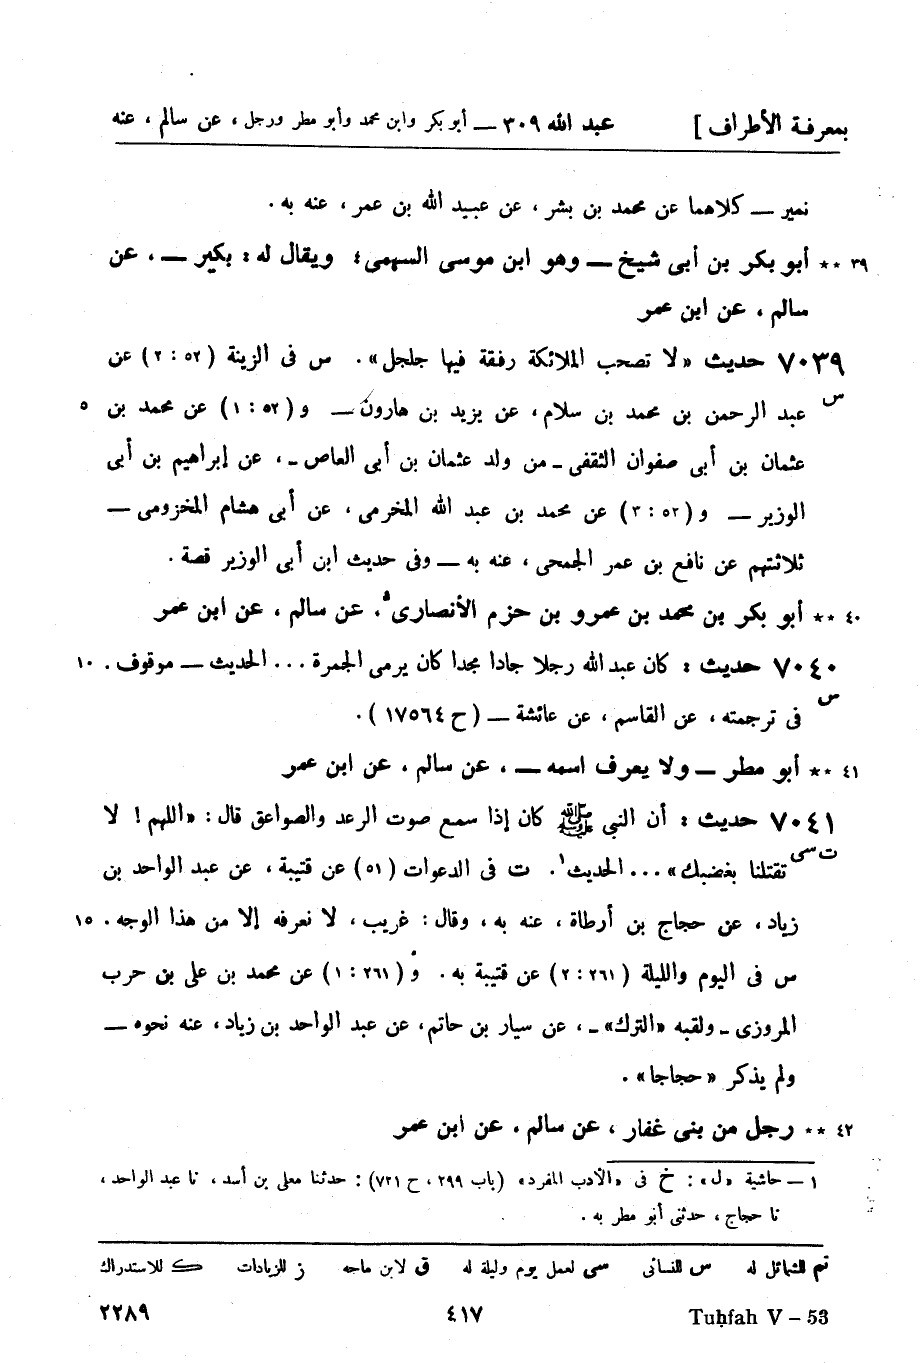 بمعرفة الأطراف ] عبد الله ٣٠٩ — أبو بكر وابن محمد وأبو مطر ورجل ، عن سالم ، عنه
نمير — كلاهما عن محمد بن بشر ، عن عبيد الله بن عمر ، عنه به .
٣٩ ** أبو بكر بن أبى شيخ — وهو ابن موسى السهمى ؛ ويقال له : بكير — ، عن
سالم ، عن ابن عمر
٧٠٣٩ حديث « لا تصحب الملائكة رفقة فيها جلجل » . س فى الزينة ( ٥٢ : ٢ ) عن
س عبد الرحمن بن محمد بن سلام ، عن يزيد بن هارون — و ( ٥٢ : ١ ) عن محمد بن ٥
عثمان بن أبى صفوان الثقفى - من ولد عثمان بن أبى العاص - ، عن إبراهيم بن أبى
الوزير — و ( ٥٢ : ٣ ) عن محمد بن عبد الله المخرمى ، عن أبى هشام المخزومى —
ثلاثتهم عن نافع بن عمر الجمحى ، عنه به — وفى حديث ابن أبى الوزير قصة .
٤٠ ** أبو بكر بن محمد بن عمرو بن حزم الأنصارى ، عن سالم ، عن ابن عمر
٧٠٤٠ حديث : كان عبد الله رجلا جادا مجدا كان يرمى الجمرة ... الحديث — موقوف . ١٠
س فى ترجمته ، عن القاسم ، عن عائشة — ( ح ١٧٥٦٤ ) .
٤١ ** أبو مطر — ولا يعرف اسمه — ، عن سالم ، عن ابن عمر
٧٠٤١ حديث : أن النبي ﷺ كان إذا سمع صوت الرعد والصواعق قال : « اللهم ! لا
ت سى تقتلنا بغضبك » ... الحديث ١ . ت فى الدعوات ( ٥١ ) عن قتيبة ، عن عبد الواحد بن
زياد ، عن حجاج بن أرطاة ، عنه به ، وقال : غريب ، لا نعرفه إلا من هذا الوجه . ١٥
س فى اليوم والليلة ( ٢٦١ : ٢ ) عن قتيبة به . و ( ٢٦١ : ١ ) عن محمد بن على بن حرب
المروزى - ولقبه « الترك » - ، عن سيار بن حاتم ، عن عبد الواحد بن زياد ، عنه نحوه —
ولم يذكر « حجاجا » .
٤٢ ** رجل من بنى غفار ، عن سالم ، عن ابن عمر
١ — حاشية « ل » : خ فى « الأدب المفرد » ( باب ٢٩٩ ، ح ٧٢١ ) : حدثنا معلى بن أسد ، نا عبد الواحد ،
نا حجاج ، حدثنى أبو مطر به .
تم للشمائل له س للنسائى سى لعمل يوم وليلة له ق لابن ماجه ز للزيادات ك للاستدراك
٢٢٨٩ ٤١٧ Tuḥfah V – 53